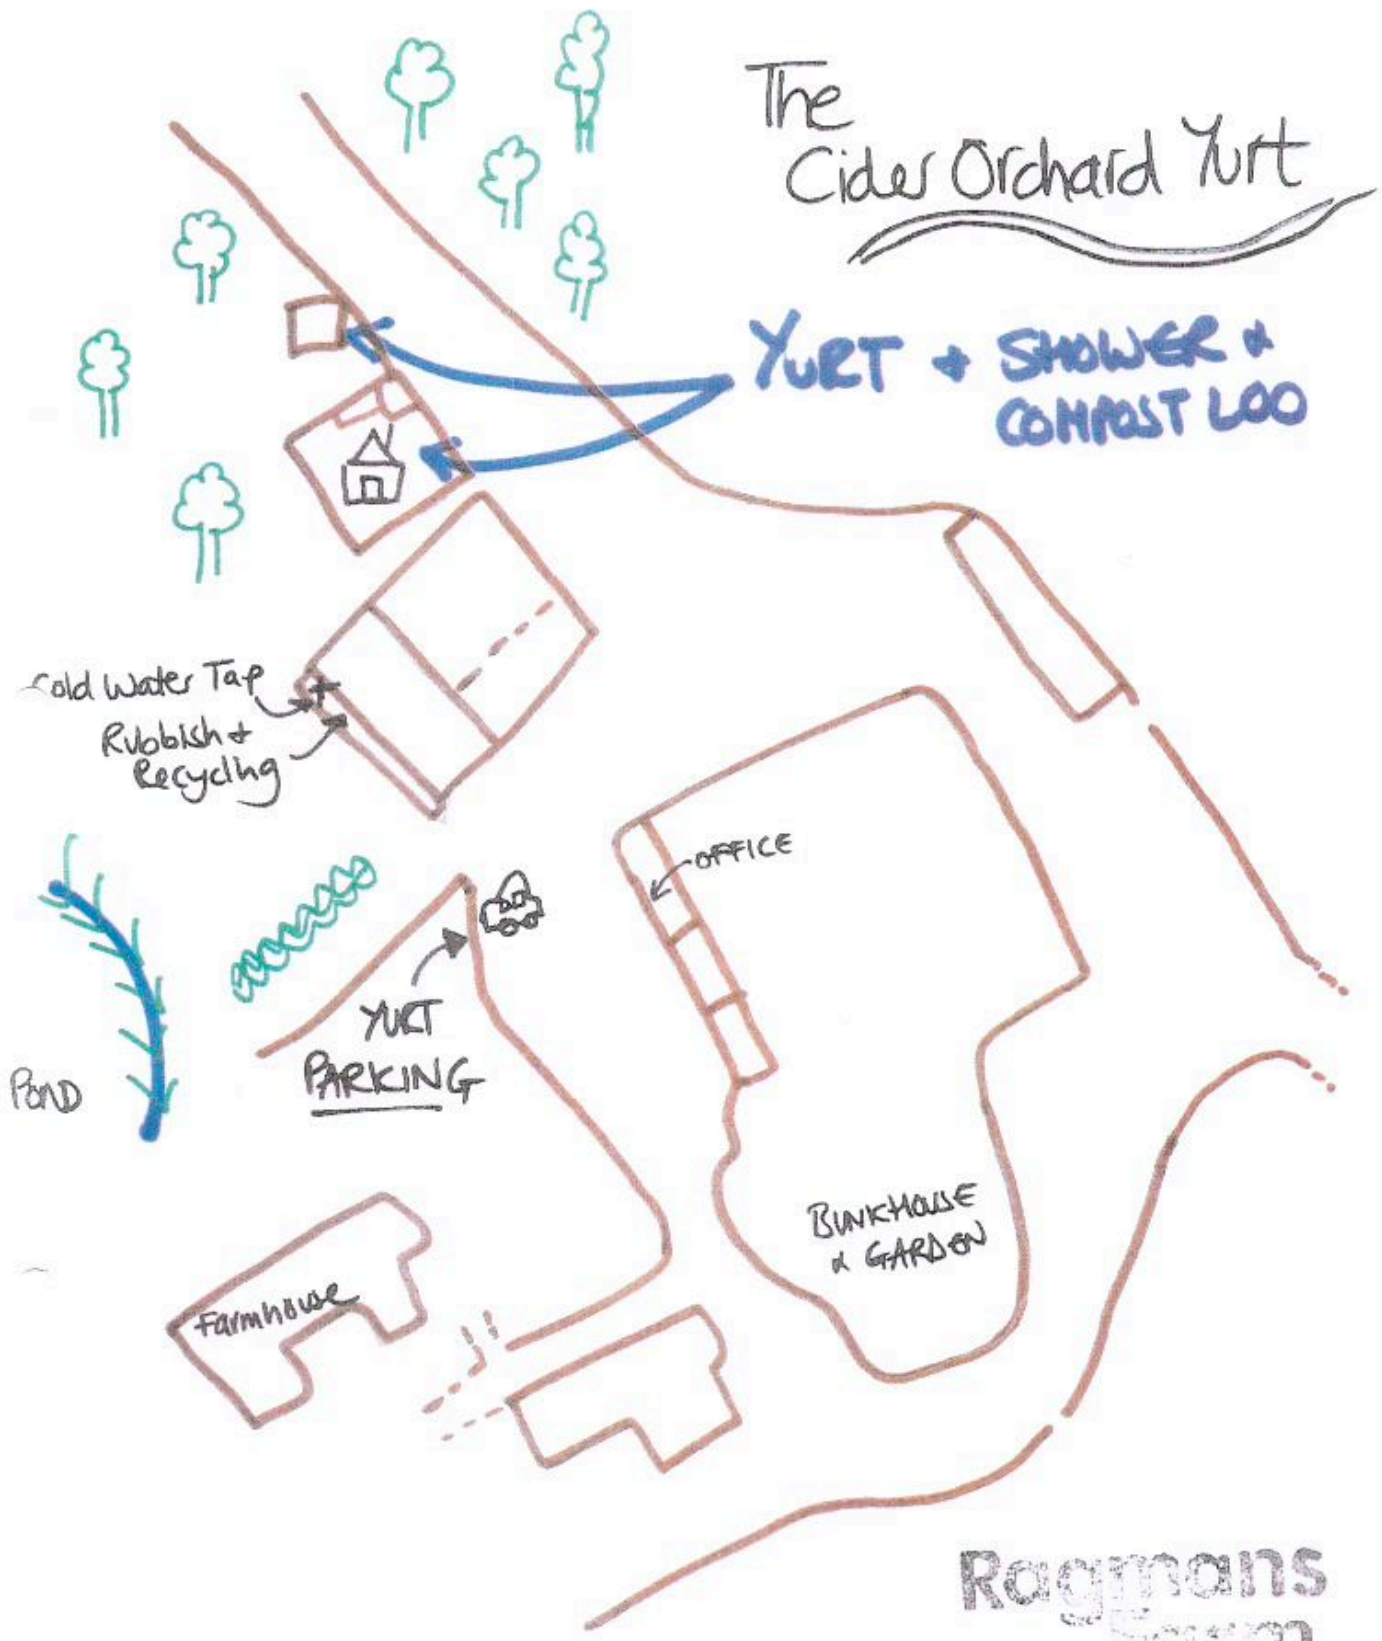 The
Cider Orchard Yurt
YURT + SHOWER &
COMPOST LOO
Cold Water Tap
Rubbish +
Recycling
OFFICE
YURT
PARKING
POND
BUNKHOUSE
& GARDEN
Farmhouse
Ragmans